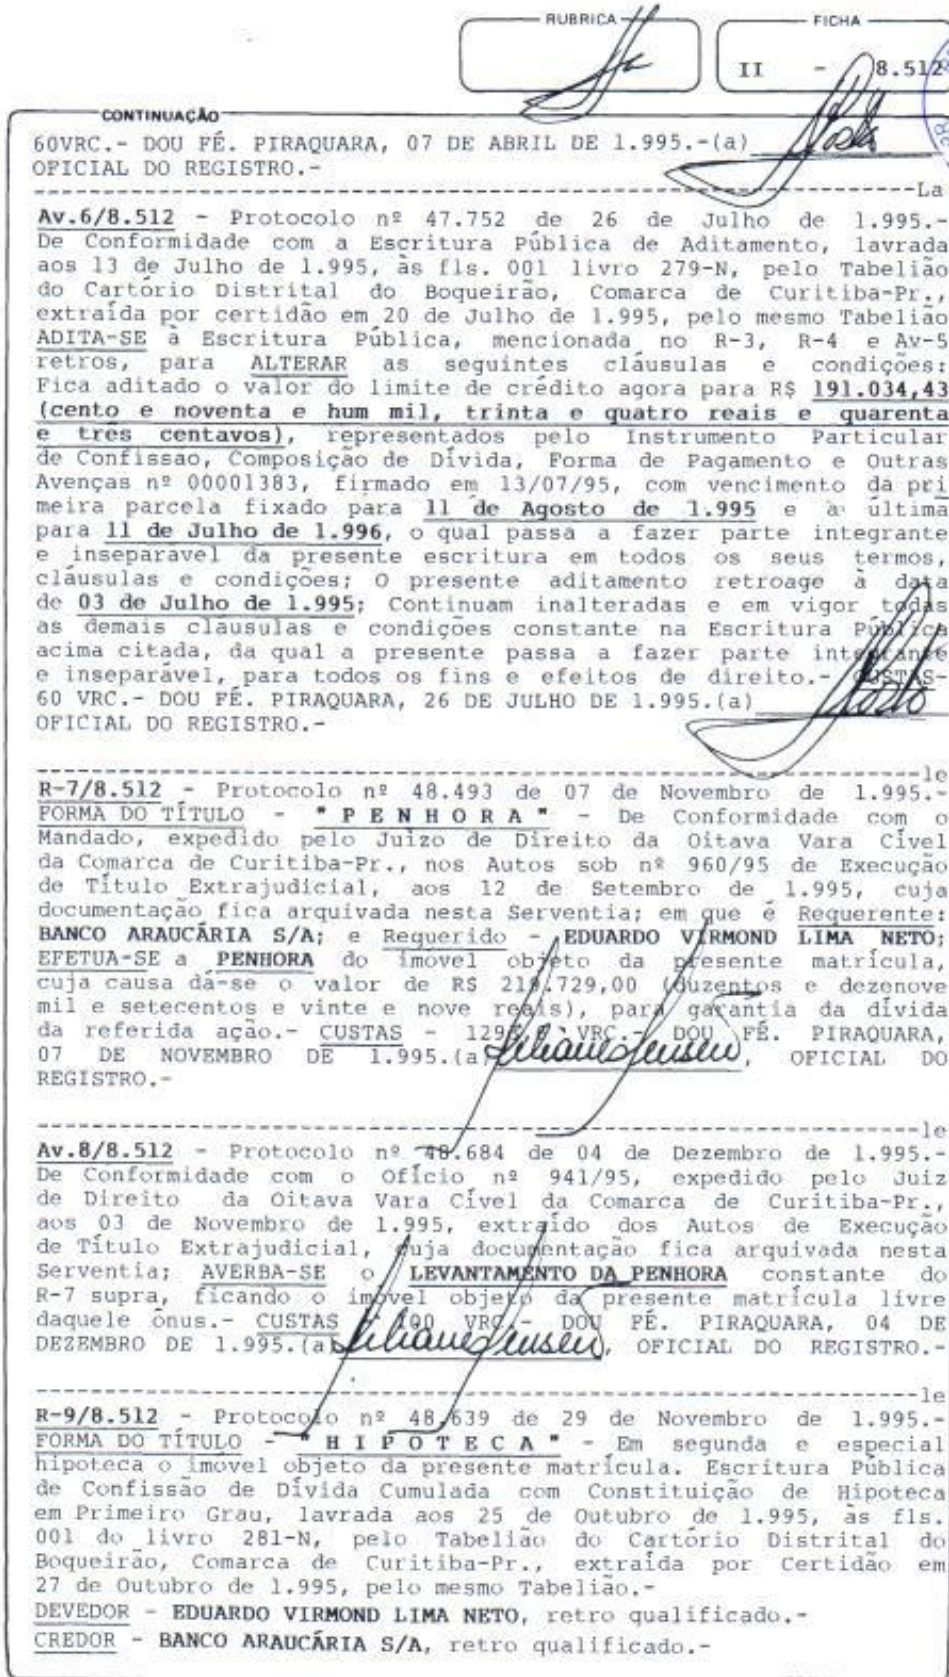 RUBRICA
FICHA
II - 8.512
CONTINUAÇÃO
60VRC.- DOU FÉ. PIRAQUARA, 07 DE ABRIL DE 1.995.-(a)
OFICIAL DO REGISTRO.-
La
Av.6/8.512 - Protocolo nº 47.752 de 26 de Julho de 1.995.-
De Conformidade com a Escritura Pública de Aditamento, lavrada
aos 13 de Julho de 1.995, às fls. 001 livro 279-N, pelo Tabelião
do Cartório Distrital do Boqueirão, Comarca de Curitiba-Pr.,
extraída por certidão em 20 de Julho de 1.995, pelo mesmo Tabelião
ADITA-SE à Escritura Pública, mencionada no R-3, R-4 e Av-5
retros, para ALTERAR as seguintes cláusulas e condições:
Fica aditado o valor do limite de crédito agora para R$ 191.034,43
(cento e noventa e hum mil, trinta e quatro reais e quarenta
e três centavos), representados pelo Instrumento Particular
de Confissão, Composição de Dívida, Forma de Pagamento e Outras
Avenças nº 00001383, firmado em 13/07/95, com vencimento da pri
meira parcela fixado para 11 de Agosto de 1.995 e a última
para 11 de Julho de 1.996, o qual passa a fazer parte integrante
e inseparável da presente escritura em todos os seus termos,
cláusulas e condições; O presente aditamento retroage à data
de 03 de Julho de 1.995; Continuam inalteradas e em vigor todas
as demais cláusulas e condições constante na Escritura Pública
acima citada, da qual a presente passa a fazer parte integrante
e inseparável, para todos os fins e efeitos de direito.- CUSTAS-
60 VRC.- DOU FÉ. PIRAQUARA, 26 DE JULHO DE 1.995.(a)
OFICIAL DO REGISTRO.-
le
R-7/8.512 - Protocolo nº 48.493 de 07 de Novembro de 1.995.-
FORMA DO TÍTULO - "P E N H O R A" - De Conformidade com o
Mandado, expedido pelo Juízo de Direito da Oitava Vara Cível
da Comarca de Curitiba-Pr., nos Autos sob nº 960/95 de Execução
de Título Extrajudicial, aos 12 de Setembro de 1.995, cuja
documentação fica arquivada nesta Serventia; em que é Requerente:
BANCO ARAUCÁRIA S/A; e Requerido - EDUARDO VIRMOND LIMA NETO;
EFETUA-SE a PENHORA do imóvel objeto da presente matrícula,
cuja causa dá-se o valor de R$ 219.729,00 (duzentos e dezenove
mil e setecentos e vinte e nove reais), para garantia da dívida
da referida ação.- CUSTAS - VRC.- DOU FÉ. PIRAQUARA,
07 DE NOVEMBRO DE 1.995.(a) Liliane Jensen, OFICIAL DO
REGISTRO.-
le
Av.8/8.512 - Protocolo nº 48.684 de 04 de Dezembro de 1.995.-
De Conformidade com o Ofício nº 941/95, expedido pelo Juiz
de Direito da Oitava Vara Cível da Comarca de Curitiba-Pr.,
aos 03 de Novembro de 1.995, extraído dos Autos de Execução
de Título Extrajudicial, cuja documentação fica arquivada nesta
Serventia; AVERBA-SE o LEVANTAMENTO DA PENHORA constante do
R-7 supra, ficando o imóvel objeto da presente matrícula livre
daquele ônus.- CUSTAS 100 VRC.- DOU FÉ. PIRAQUARA, 04 DE
DEZEMBRO DE 1.995.(a) Liliane Jensen, OFICIAL DO REGISTRO.-
le
R-9/8.512 - Protocolo nº 48.639 de 29 de Novembro de 1.995.-
FORMA DO TÍTULO - "H I P O T E C A" - Em segunda e especial
hipoteca o imóvel objeto da presente matrícula. Escritura Pública
de Confissão de Dívida Cumulada com Constituição de Hipoteca
em Primeiro Grau, lavrada aos 25 de Outubro de 1.995, às fls.
001 do livro 281-N, pelo Tabelião do Cartório Distrital do
Boqueirão, Comarca de Curitiba-Pr., extraída por Certidão em
27 de Outubro de 1.995, pelo mesmo Tabelião.-
DEVEDOR - EDUARDO VIRMOND LIMA NETO, retro qualificado.-
CREDOR - BANCO ARAUCÁRIA S/A, retro qualificado.-